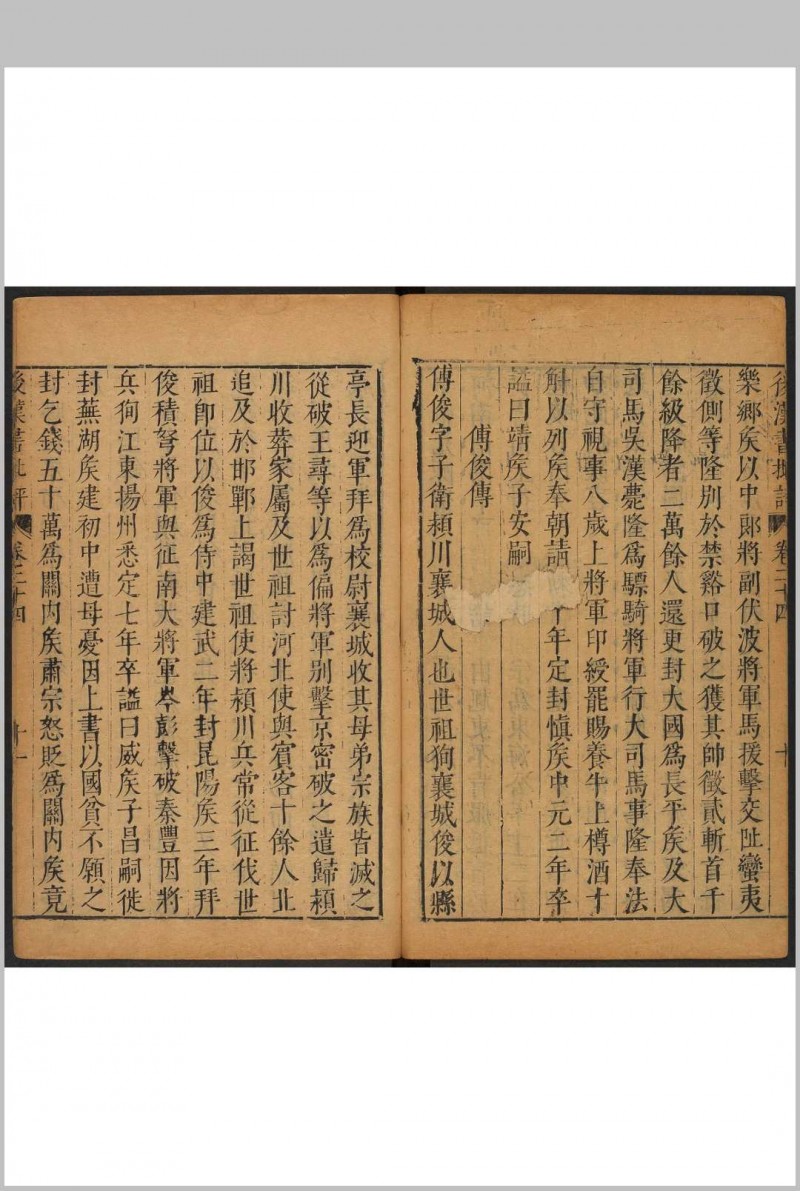 樂鄉矦以中郞將副伏波將軍馬援擊交阯蠻夷
徵側等隆别於禁谿口破之獲其帥徵貳斬首千
餘級降者二萬餘人還更封大國爲長平矦及大
司馬吳漢薨隆爲驃騎將軍行大司馬事隆奉法
自守視事八歲上將軍印綬罷賜養牛上樽酒十
斛以列矦奉朝請 十年定封愼矦中元二年卒
謚曰靖矦子安嗣
傅俊傳
傅俊字子衛潁川襄城人也世祖狥襄城俊以縣
亭長迎軍拜爲校尉襄城收其母弟宗族皆滅之
從破王尋等以爲偏將軍别擊京密破之遣歸潁
川收葬家屬及世祖討河北使與賓客十餘人北
追及於邯鄲上謁世祖使將潁川兵常從征伐世
祖卽位以俊爲侍中建武二年封昆陽矦三年拜
俊積弩將軍與征南大將軍岑彭擊破秦豐因將
兵狥江東揚州悉定七年卒謚曰威矦子昌嗣徙
封蕪湖矦建初中遭母憂因上書以國貧不願之
封乞錢五十萬爲關内矦肅宗怒貶爲關内矦竟
後漢書批評 卷二十四 十一